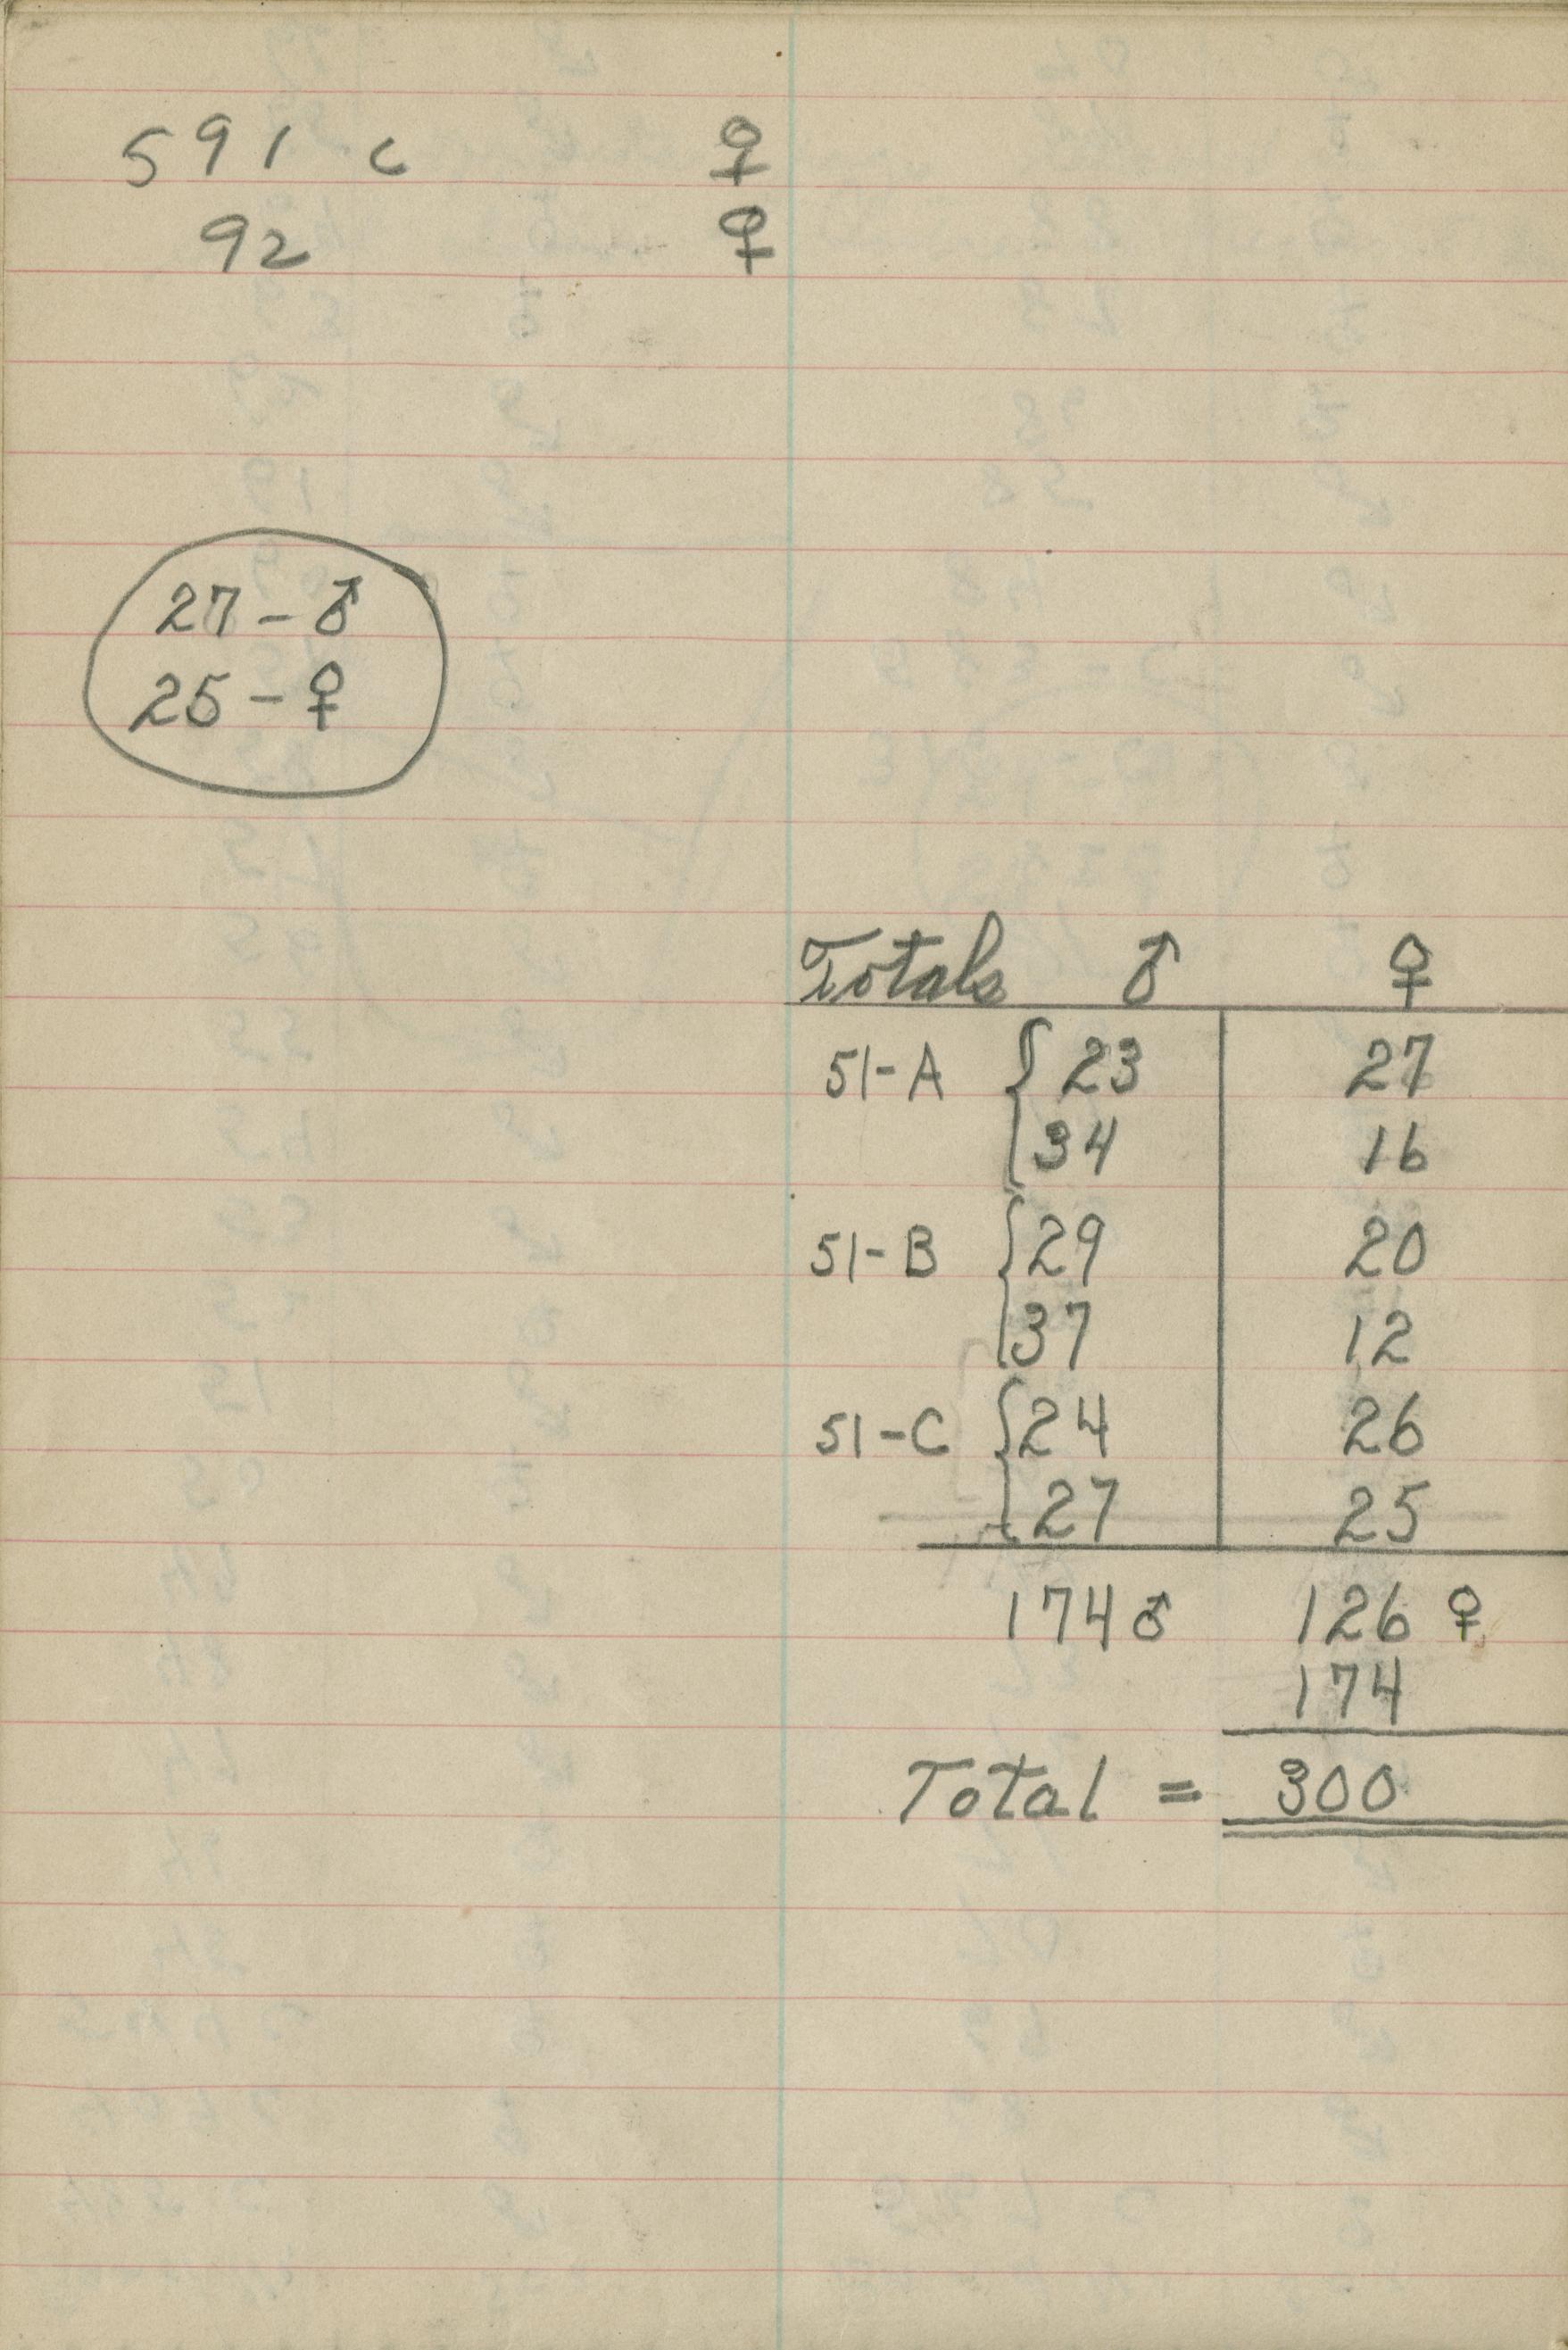 591 c ♀
92 ♀
27 - ♂
25 - ♀
Totals ♂ ♀
51-A { 23 27
34 16
51-B { 29 20
37 12
51-C { 24 26
27 25
174 ♂ 126 ♀
174
Total = 300